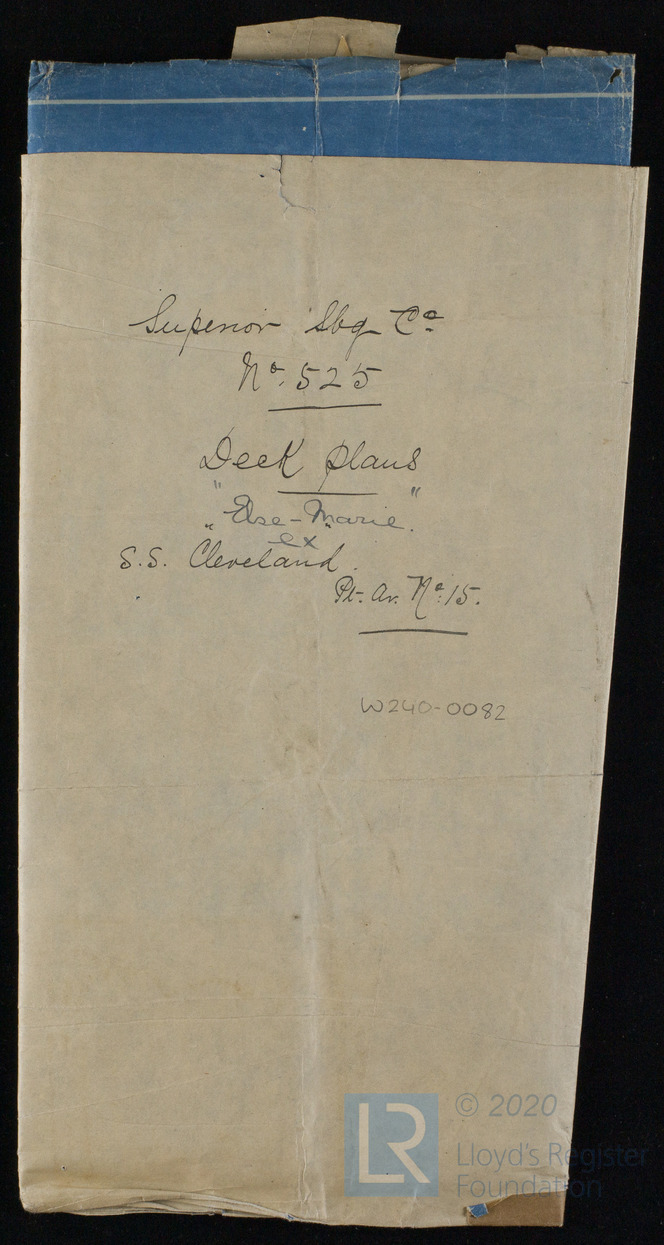 Superior Sbg Co
No. 525
Deck plans
"Else-Marie".
ex
S.S. Cleveland.
Pt. Ar. No. 15.
W240-0082
LR © 2020
Lloyd's Register
Foundation